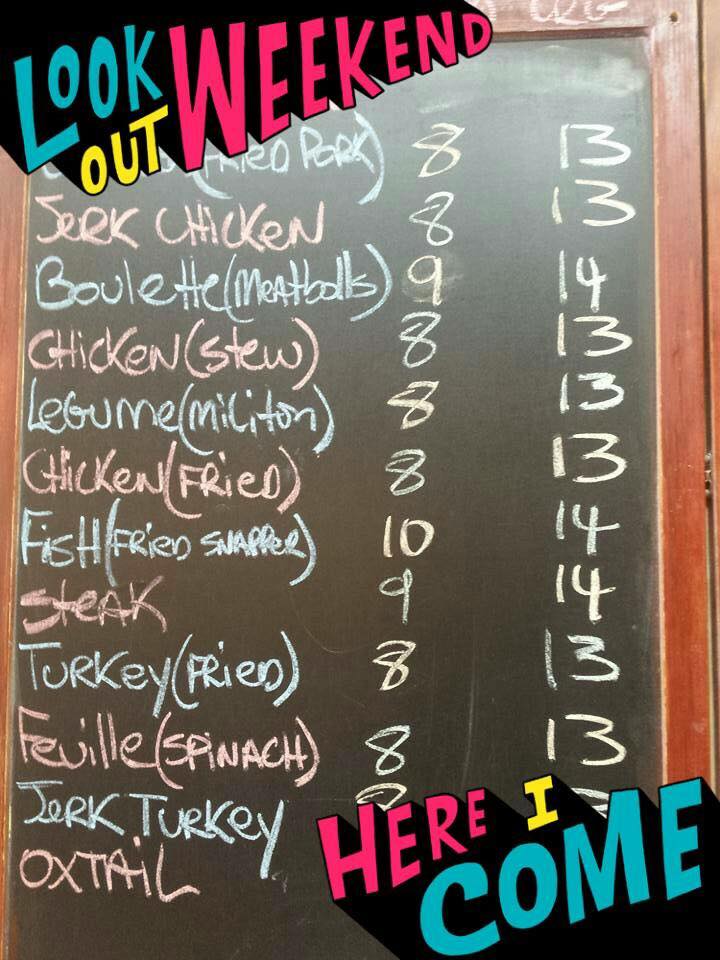 LOOK OUT WEEKEND
(FRIED PORK) 8 13
JERK CHICKEN 8 13
Boulette (Meatballs) 9 14
CHICKEN (STEW) 8 13
LEGUME (MILITON) 8 13
CHICKEN (FRIED) 8 13
FISH (FRIED SNAPPER) 10 14
STEAK 9 14
TURKEY (FRIED) 8 13
Feuille (SPINACH) 8 13
JERK TURKEY
OXTAIL
HERE I COME